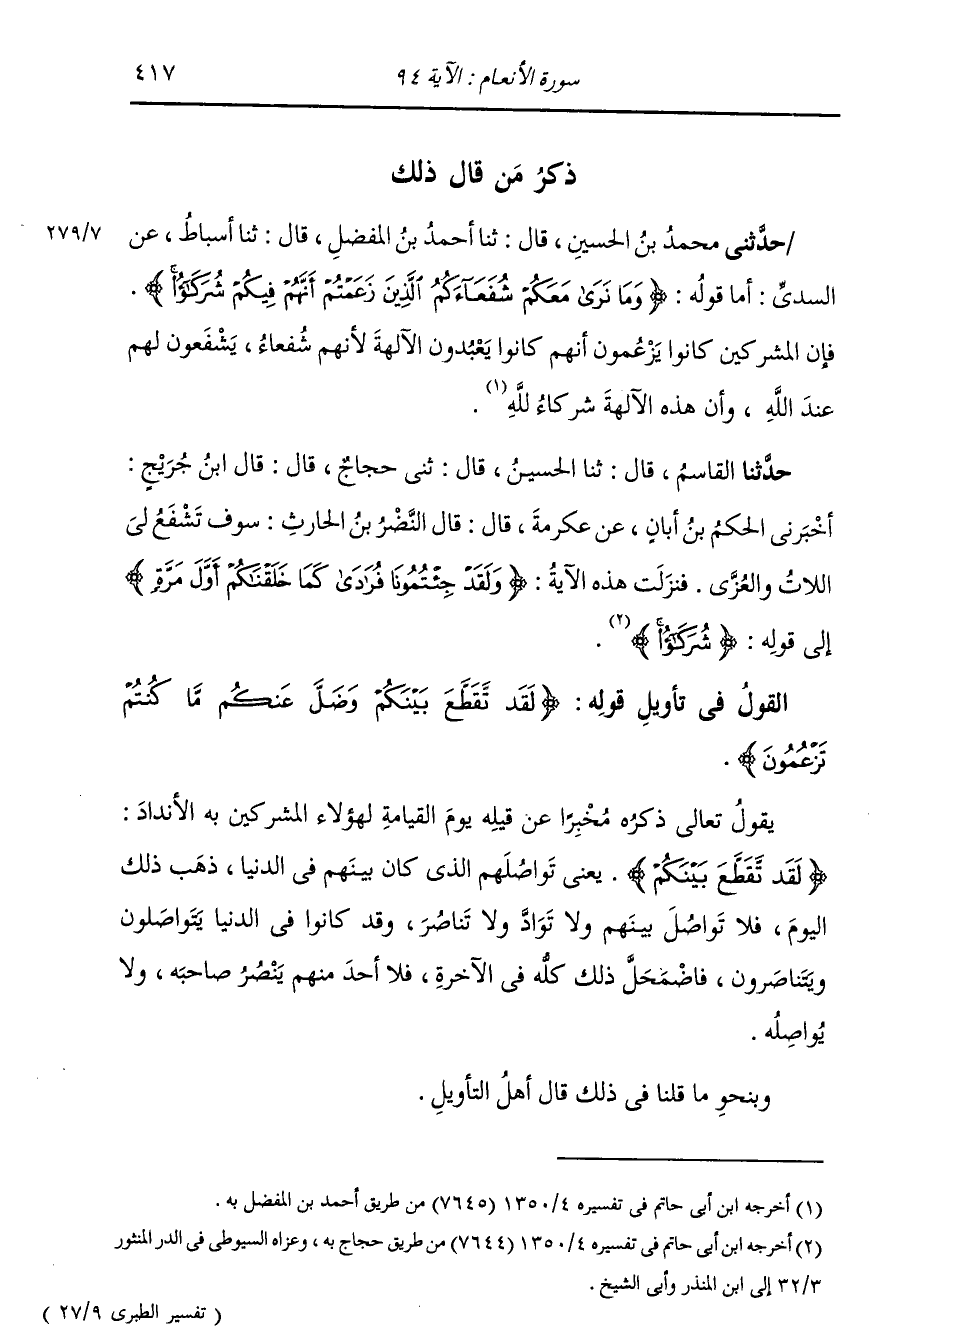 سورة الأنعام : الآية ٩٤
٤١٧
ذكرُ مَن قال ذلك
/حدَّثنى محمدُ بنُ الحسينِ ، قال : ثنا أحمدُ بنُ المفضلِ ، قال : ثنا أسباطُ ، عن
٢٧٩/٧
السدىِّ : أما قولُه : ﴿ وَمَا نَرَىٰ مَعَكُمْ شُفَعَآءَكُمُ ٱلَّذِينَ زَعَمْتُمْ أَنَّهُمْ فِيكُمْ شُرَكَٰٓؤُا۟ ۚ ﴾ .
فإن المشركين كانوا يَزْعُمون أنهم كانوا يَعْبُدون الآلهةَ لأنهم شُفعاءُ ، يَشْفَعون لهم
عندَ اللَّهِ ، وأن هذه الآلهةَ شركاءُ للَّهِ (١) .
حدَّثنا القاسمُ ، قال : ثنا الحسينُ ، قال : ثنى حجاجٌ ، قال : قال ابنُ جُرَيْجٍ :
أخْبَرنى الحكمُ بنُ أبانٍ ، عن عكرمةَ ، قال : قال النَّضْرُ بنُ الحارثِ : سوف تَشْفَعُ لىَ
اللاتُ والعُزَّى . فنزَلَت هذه الآيةُ : ﴿ وَلَقَدْ جِئْتُمُونَا فُرَٰدَىٰ كَمَا خَلَقْنَٰكُمْ أَوَّلَ مَرَّةٍ ﴾
إلى قولِه : ﴿ شُرَكَٰٓؤُا۟ ۚ ﴾ (٢) .
القولُ فى تأويلِ قولِه : ﴿ لَقَد تَّقَطَّعَ بَيْنَكُمْ وَضَلَّ عَنكُم مَّا كُنتُمْ
تَزْعُمُونَ ﴾ .
يقولُ تعالى ذكرُه مُخْبِرًا عن قيلِه يومَ القيامةِ لهؤلاء المشركين به الأندادَ :
﴿ لَقَد تَّقَطَّعَ بَيْنَكُمْ ﴾ . يعنى تَواصُلَهم الذى كان بينَهم فى الدنيا ، ذهَب ذلك
اليومَ ، فلا تَواصُلَ بينَهم ولا تَوَادَّ ولا تَناصُرَ ، وقد كانوا فى الدنيا يَتَواصَلون
ويَتَناصَرون ، فاضْمَحَلَّ ذلك كلُّه فى الآخرةِ ، فلا أحدَ منهم يَنْصُرُ صاحبَه ، ولا
يُواصِلُه .
وبنحوِ ما قلنا فى ذلك قال أهلُ التأويلِ .
(١) أخرجه ابن أبى حاتم فى تفسيره ١٣٥٠/٤ (٧٦٤٥) من طريق أحمد بن المفضل به .
(٢) أخرجه ابن أبى حاتم فى تفسيره ١٣٥٠/٤ (٧٦٤٤) من طريق حجاج به ، وعزاه السيوطى فى الدر المنثور
٣٢/٣ إلى ابن المنذر وأبى الشيخ .
( تفسير الطبرى ٢٧/٩ )